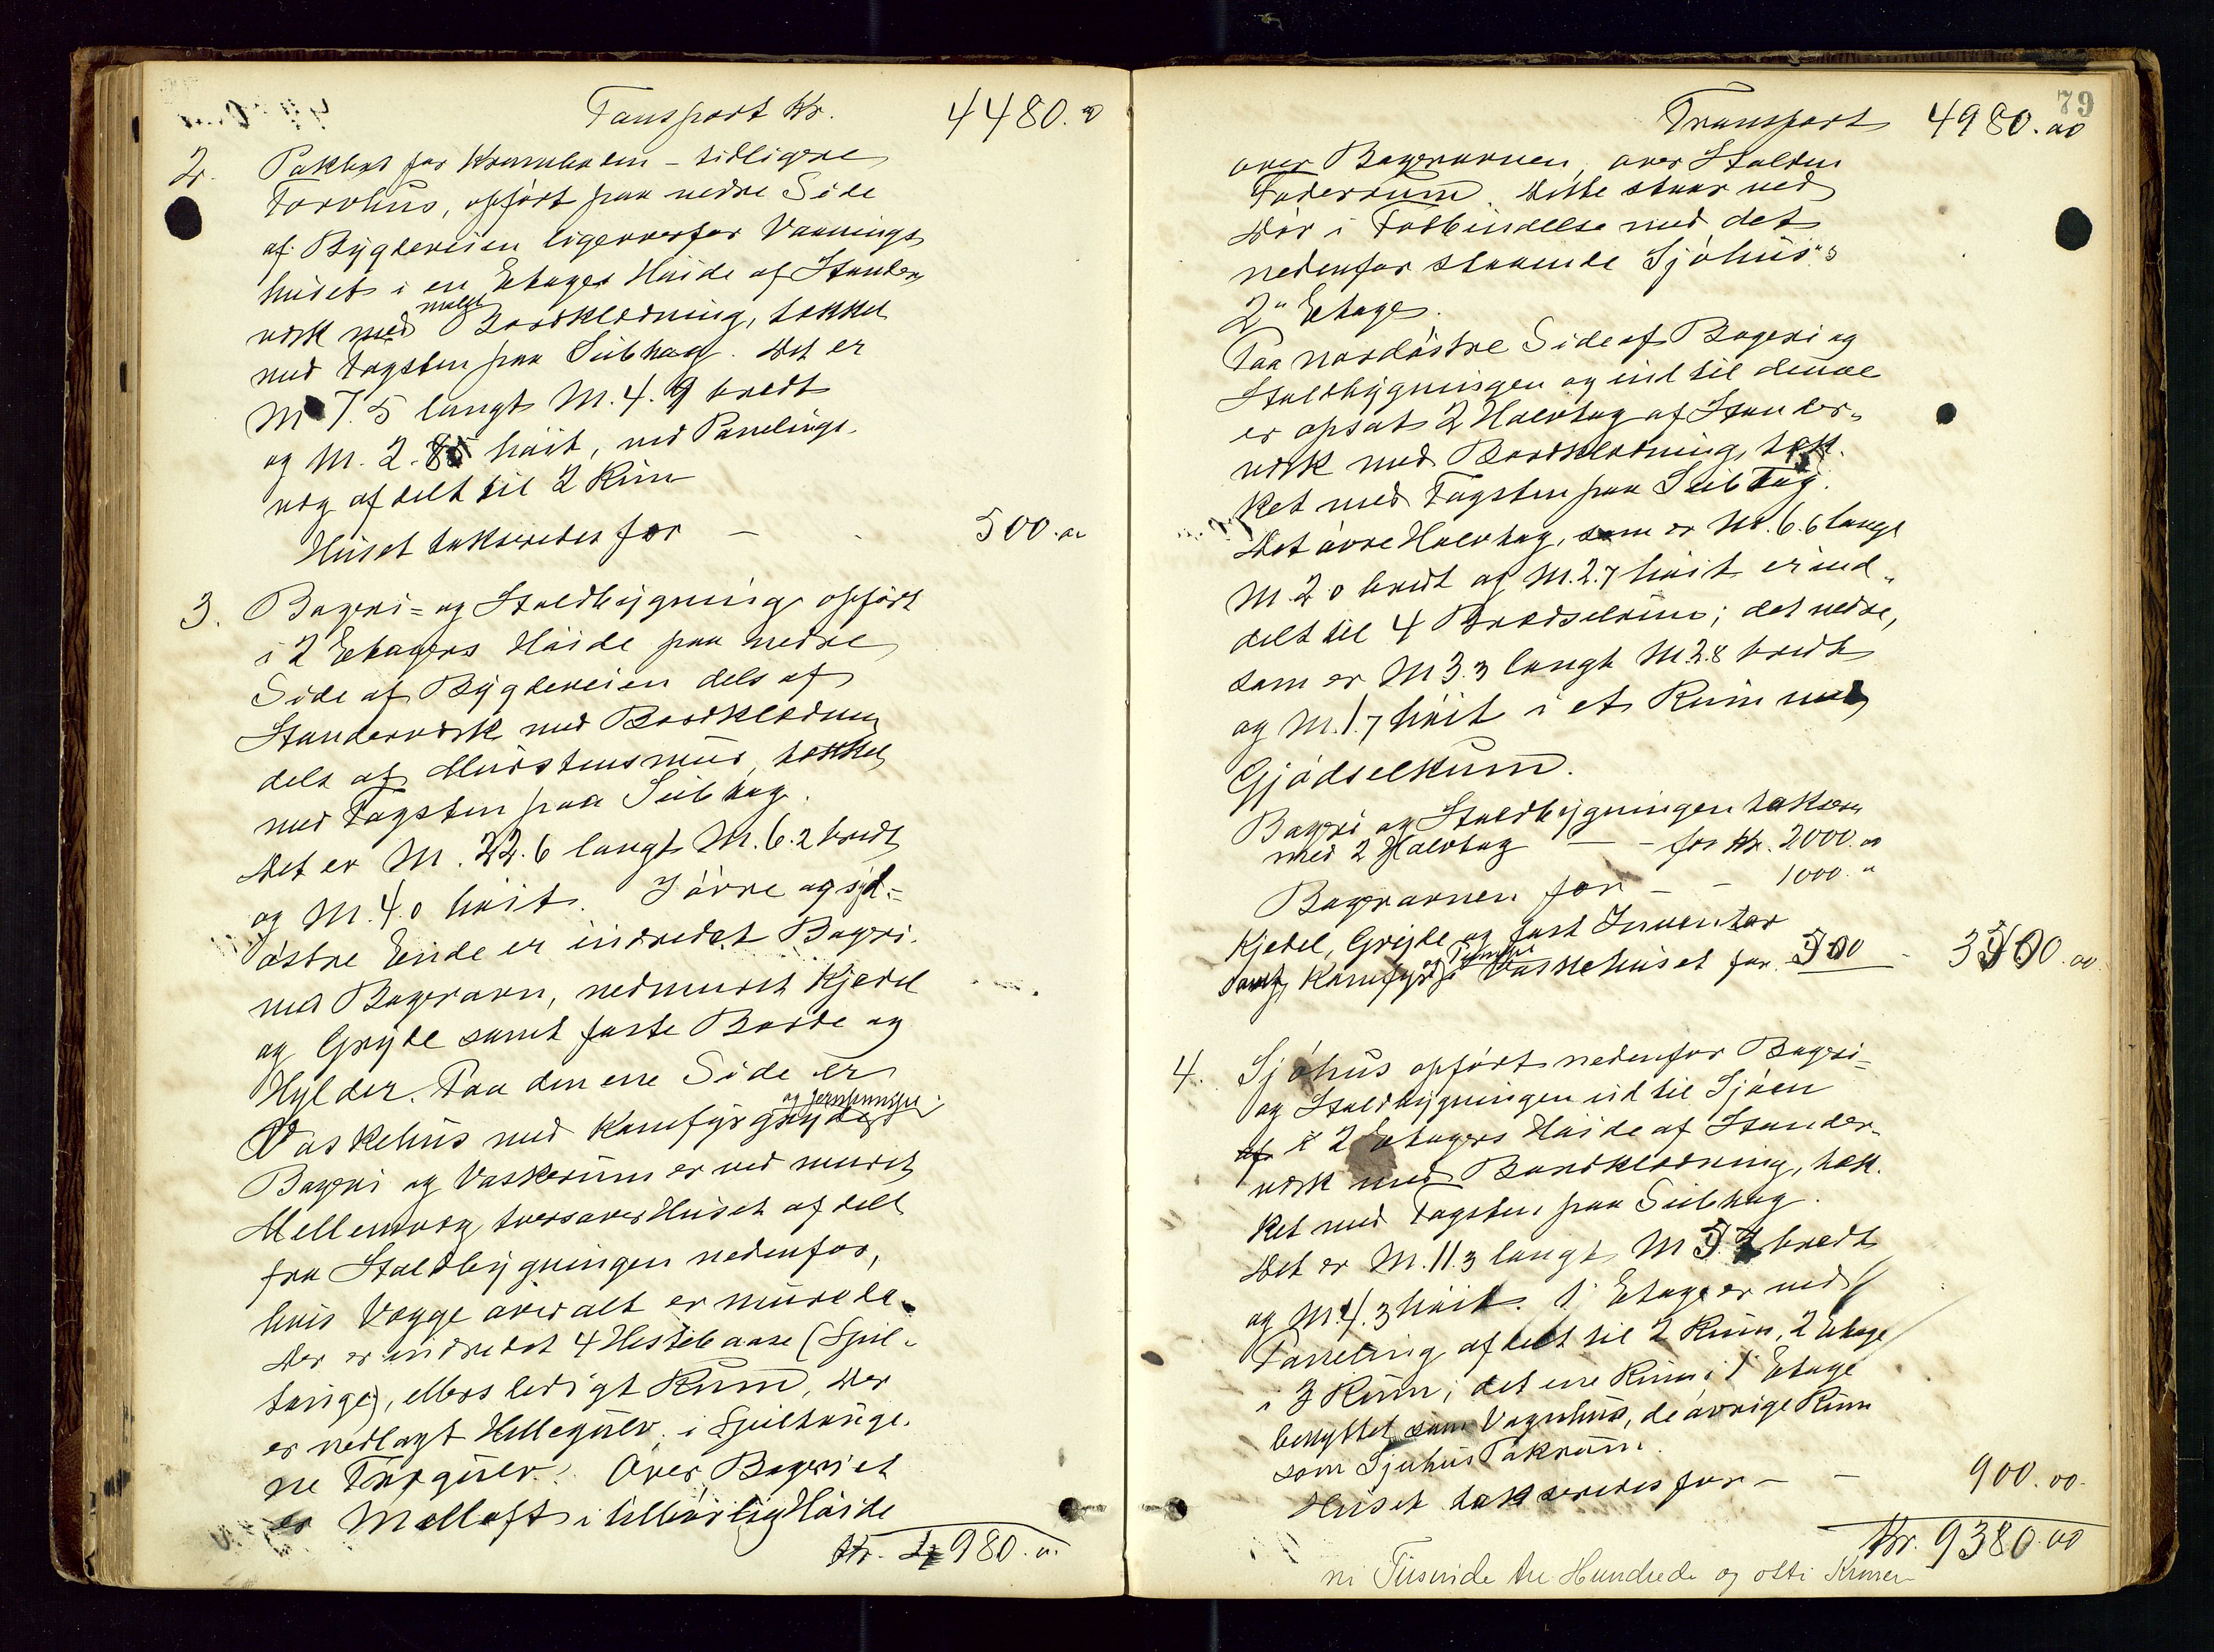 Tansport Kr. 4480.00
2. Pakbod for Kramboden - tidligere
Torvhus, opfört paa nedre Side
af Bygdeveien ligeoverfor Vaanings
huset i en Etages Höide af Stander
værk med malet Bordklædning, tækket
med Tagsten paa Sutag. Det er
M 7.5 langt M. 4.9 bredt
og M. 2.85 höit, ved Panelings
væg afdelt til 2 Rum
Huset takseredes for - 500.00
3. Bageri= og Staldbygning opfört
i 2 Etagers Höide paa nedre
Side af Bygdeveien dels af
Standerværk med Bordklædning
dels af Murstensmur, tækket
med Tagsten paa Sutag.
Det er M. 22.6 langt M. 6.2 bredt
og M. 4.0 höit. I övre og syd=
östre Ende er indredet Bageri
med Bagerovn, nedmuret Kjedel
og Gryde samt faste Borde og
Hylder. Paa den ene Side er
Vaskehus med Komfyr gryde og
Bageri og Vaskerum er ved muret
Mellemvæg tversover Huset afdelt
fra Staldbygningen nedenfor,
hvis Vægge overalt er murede.
Der er indredet 4 Hestebaase (Spil-
tauge), ellers ledigt Rum. Der
er nedlagt Hellegulv i Spiltauge.
ne Trægulv. Over Bageriet
er Melloft i tilbörlig Höide
Kr. 4980.00
79
Transport 4980.00
over Bagerovnen, over Stalden
Foderrum. Dette staar ved
Dör i Forbindelse med det
nedenfor staaende Sjöhus's
2" Etage.
Paa nordöstre Side af Bageri og
Staldbygningen og ind til denne
er opsat 2 Halvtag af Stander-
værk med Bordklædning, tæk-
ket med Tagsten paa Sutag.
Det övre Halvtag, som er M. 6.6 langt
M. 2.0 bredt og M. 2.7 höit er ind-
delt til 4 Brædselrum; det nedre,
som er M 3.3 langt M. 2.8 bredt
og M. 1.7 höit i et Rum med
Gjödselkum.
Bageri og Staldbygningen takseres
med 2 Halvtag - - for Kr. 2000.00
Bagerovnen for - - 1000. "
Kjedel, Gryde og fast Inventar
samt Komfyr og i Vaskehuset for 500 - 3500.00
4. Sjöhus opfört nedenfor Bageri=
og Staldbygningen ud til Sjöen
af i 2 Etagers Höide af Stander-
værk med Bordklædning, tæk-
ket med Tagsten paa Sutag.
Det er M. 11.3 langt M 5. bredt
og M. 4.3 höit. 1' Etage er ved
Paneling afdelt til 2 Rum, 2 Etage
i 3 Rum; det ene Rum i 1' Etage
benyttet som Vognhus, de övrige Rum
som Sjöhus Pakrum.
Huset takseredes for - - 900.00
Kr. 9380.00
ni Tusinde tre Hundrede og otti Kroner